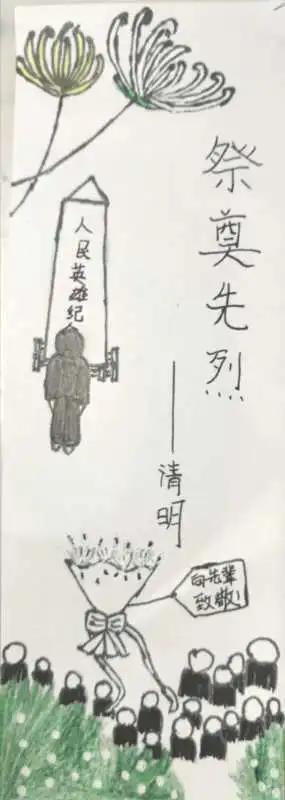 祭奠先烈
——清明
人民英雄纪
向先辈
致敬!